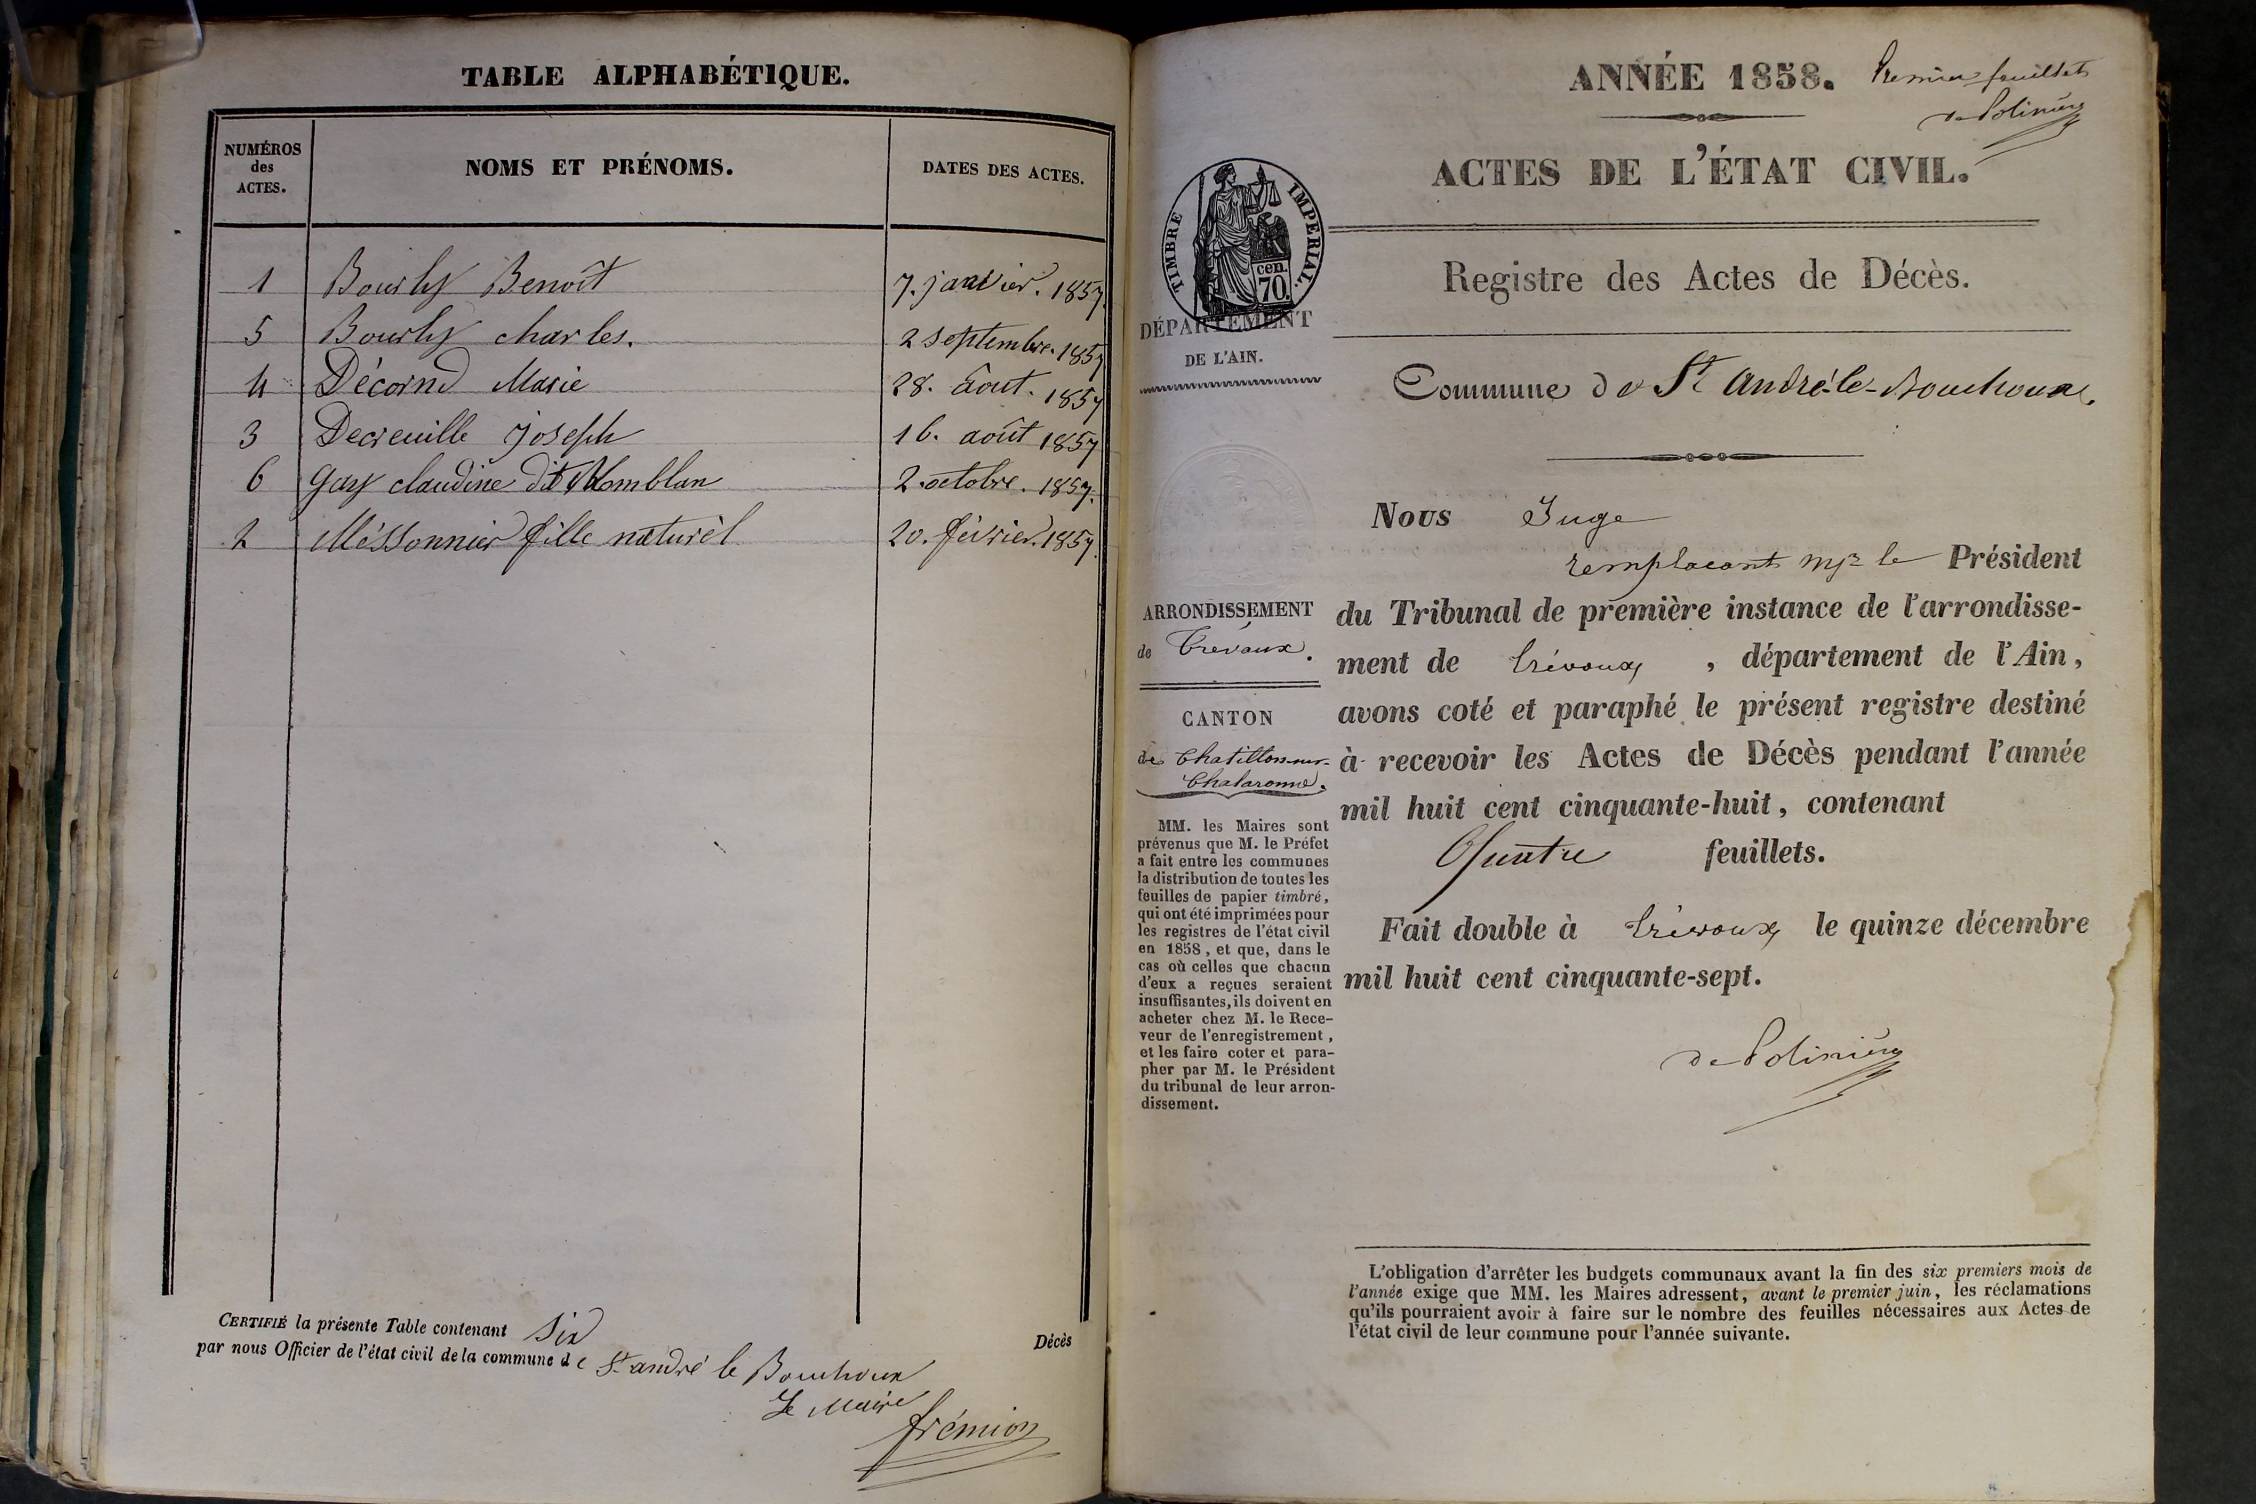 TABLE ALPHABÉTIQUE.
NUMÉROS
des
ACTES.
NOMS ET PRÉNOMS.
DATES DES ACTES.
1 Bourly Benoît 7. janvier. 1857.
5 Bourly charles. 2 septembre. 1857
4 Décornd Marie 28. Aout. 1857
3 Decreuille joseph 16. août 1857
6 Gay claudine dit Momblan 2. octobre. 1857.
2 Méssonnier fille naturèl 20. février. 1857.
CERTIFIÉ la présente Table contenant Six Décès
par nous Officier de l'état civil de la commune de St andré le Bouchoux
Le Maire
frémion
ANNÉE 1858.
Premier feuillet
de Poliniere
ACTES DE L'ÉTAT CIVIL.
TIMBRE IMPERIAL.
cen.
70.
Registre des Actes de Décès.
DÉPARTEMENT
DE L'AIN.
Commune de St André-le-Bouchoux.
ARRONDISSEMENT
de Trévoux.
CANTON
de Chatillon-sur-
Chalaronne.
MM. les Maires sont
prévenus que M. le Préfet
a fait entre les communes
la distribution de toutes les
feuilles de papier timbré,
qui ont été imprimées pour
les registres de l'état civil
en 1858, et que, dans le
cas où celles que chacun
d'eux a reçues seraient
insuffisantes, ils doivent en
acheter chez M. le Rece-
veur de l'enregistrement,
et les faire coter et para-
pher par M. le Président
du tribunal de leur arron-
dissement.
Nous Juge
remplacant Mr le Président
du Tribunal de première instance de l'arrondisse-
ment de trévoux, département de l'Ain,
avons coté et paraphé le présent registre destiné
à recevoir les Actes de Décès pendant l'année
mil huit cent cinquante-huit, contenant
Quatre feuillets.
Fait double à trévoux le quinze décembre
mil huit cent cinquante-sept.
de Poliniere
L'obligation d'arrêter les budgets communaux avant la fin des six premiers mois de
l'année exige que MM. les Maires adressent, avant le premier juin, les réclamations
qu'ils pourraient avoir à faire sur le nombre des feuilles nécessaires aux Actes de
l'état civil de leur commune pour l'année suivante.